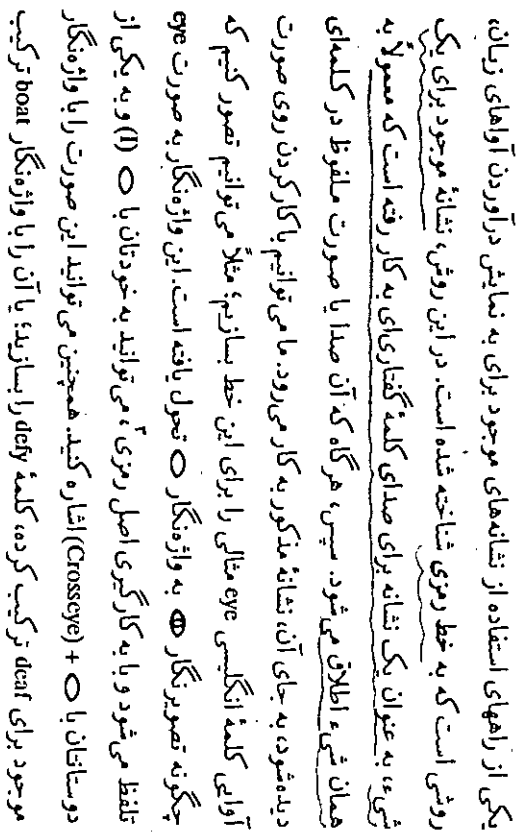 یکی از راههای استفاده از نشانه‌های موجود برای به نمایش درآوردن آواهای زبان،
روشی است که به خط رمزی شناخته شده است. در این روش، نشانهٔ موجود برای یک
شیء، به عنوان یک نشانه برای صدای کلمهٔ گفتاری‌ای به کار رفته است که معمولاً به
همان شیء اطلاق می‌شود. سپس، هرگاه که آن صدا یا صورت ملفوظ در کلمه‌ای
دیده شود، به جای آن، نشانهٔ مذکور به کار می‌رود. ما می‌توانیم با کار کردن روی صورت
آوایی کلمهٔ انگلیسی eye مثالی را برای این خط بسازیم؛ مثلاً می‌توانیم تصور کنیم که
چگونه تصویرنگار 👁 به واژه‌نگار ⬭ تحول یافته است. این واژه‌نگار به صورت eye
تلفظ می‌شود و با به کارگیری اصل رمزی۳، می‌توانید به خودتان با ⬭ (I) و به یکی از
دوستانتان با ⬭ + (Crosseye) اشاره کنید. همچنین می‌توانید این صورت را با واژه‌نگار
موجود برای deaf ترکیب کرده، کلمهٔ defy را بسازید؛ یا آن را با واژه‌نگار boat ترکیب